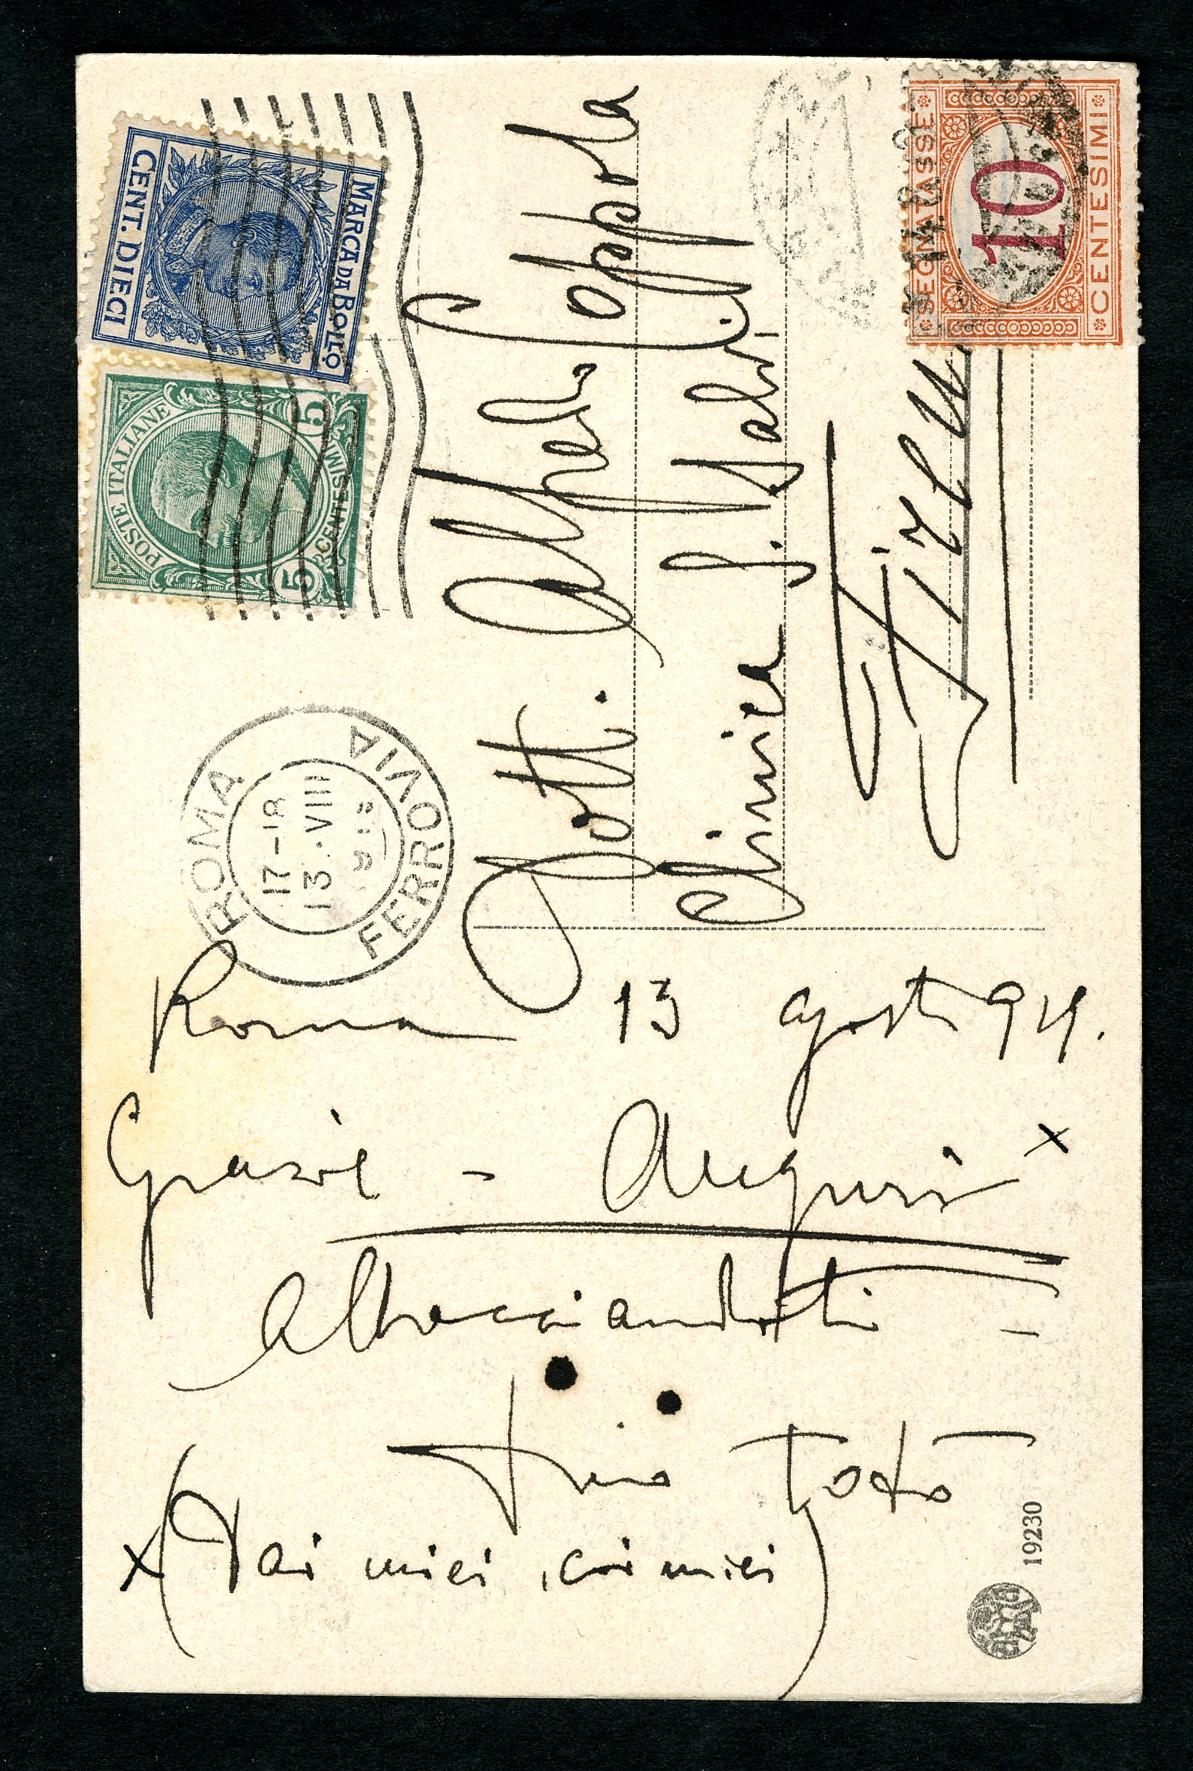 MARCA DA BOLLO
CENT. DIECI
POSTE ITALIANE
5 CENTESIMI 5
SEGNATASSE
10
CENTESIMI
ROMA
17-18
13·VIII
FERROVIA
Dott. Alfredo Coppola
Clinica J. Salvi
Roma 13 agosto 919.
Grazie - Auguri x
Abbracciandoti -
Tuo Totò
x (Dai miei, coi miei)
19230